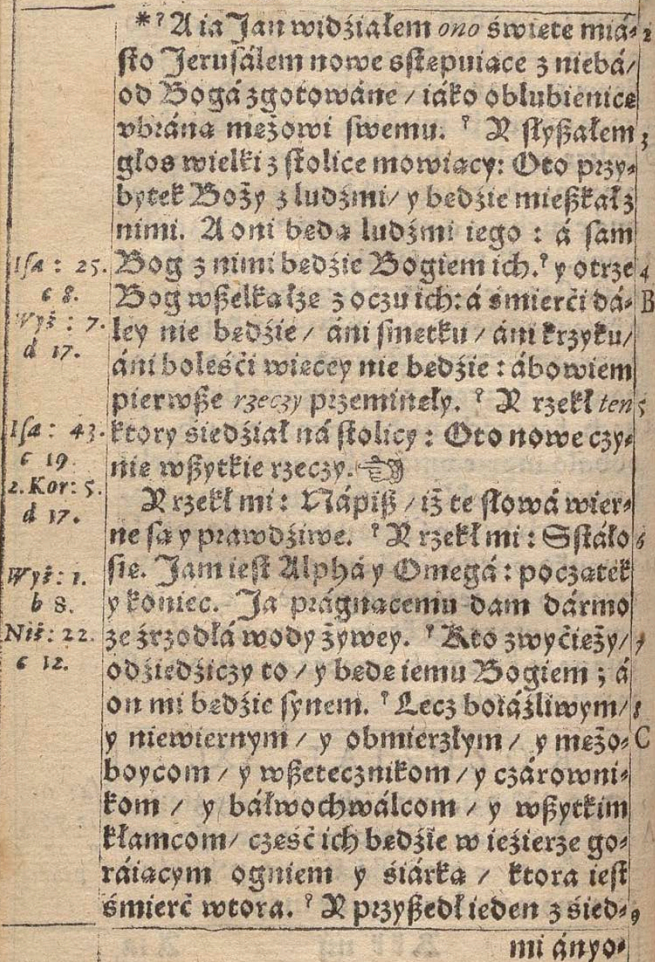 *⁊ A ia Jan widźiałem ono święte miá- 2
sto Jeruzálem nowe zstępuiące z niebá/
od Bogá zgotowáne / iáko oblubienicę
vbráną mężowi swemu. ⁊ Y słyszałem 3
głos wielki z stolice mowiący: Oto przy-
bytek Boży z ludźmi/ y będźie mieszkał z
nimi. A oni będą ludźmi iego : á sam
Isa : 25. Bog z nimi będźie Bogiem ich. ⁊ y otrze 4
c 8. Bog wszelką łzę z oczu ich: á śmierći dá- B
Wyż : 7. ley nie będźie / áni smętku / áni krzyku/
d 17. áni boleśći więcey nie będźie : ábowiem
pierwsze rzeczy przeminęły. ⁊ Y rzekł ten 5
Isa : 43. ktory śiedźiał ná stolicy : Oto nowe czy-
c 19. nię wszytkie rzeczy. ☜
2. Kor: 5. Y rzekł mi : Nápisz / iż te słowá wier-
d 17. ne są y prawdźiwe. ⁊ Y rzekł mi : Sstáło 6
Wyż: 1. się. Jam iest Alphá y Omegá : początek
b 8. y koniec. Ja prágnącemu dam dármo
Niż: 22. ze źrzodłá wody żywey. ⁊ Kto zwyćięży/ 7
c 12. odźiedźiczy to / y będę iemu Bogiem ; á
on mi będźie synem. ⁊ Lecz boiáźliwym/ 8
y niewiernym / y obmierzłym / y mężo- C
boycom / y wszetecznikom / y czárowni-
kom / y báłwochwálcom / y wszytkim
kłamcom/ część ich będźie w ieźierze go-
ráiącym ogniem y śiárką / ktora iest
śmierć wtora. ⁊ Y przyszedł ieden z śied- 9
mi ányo-